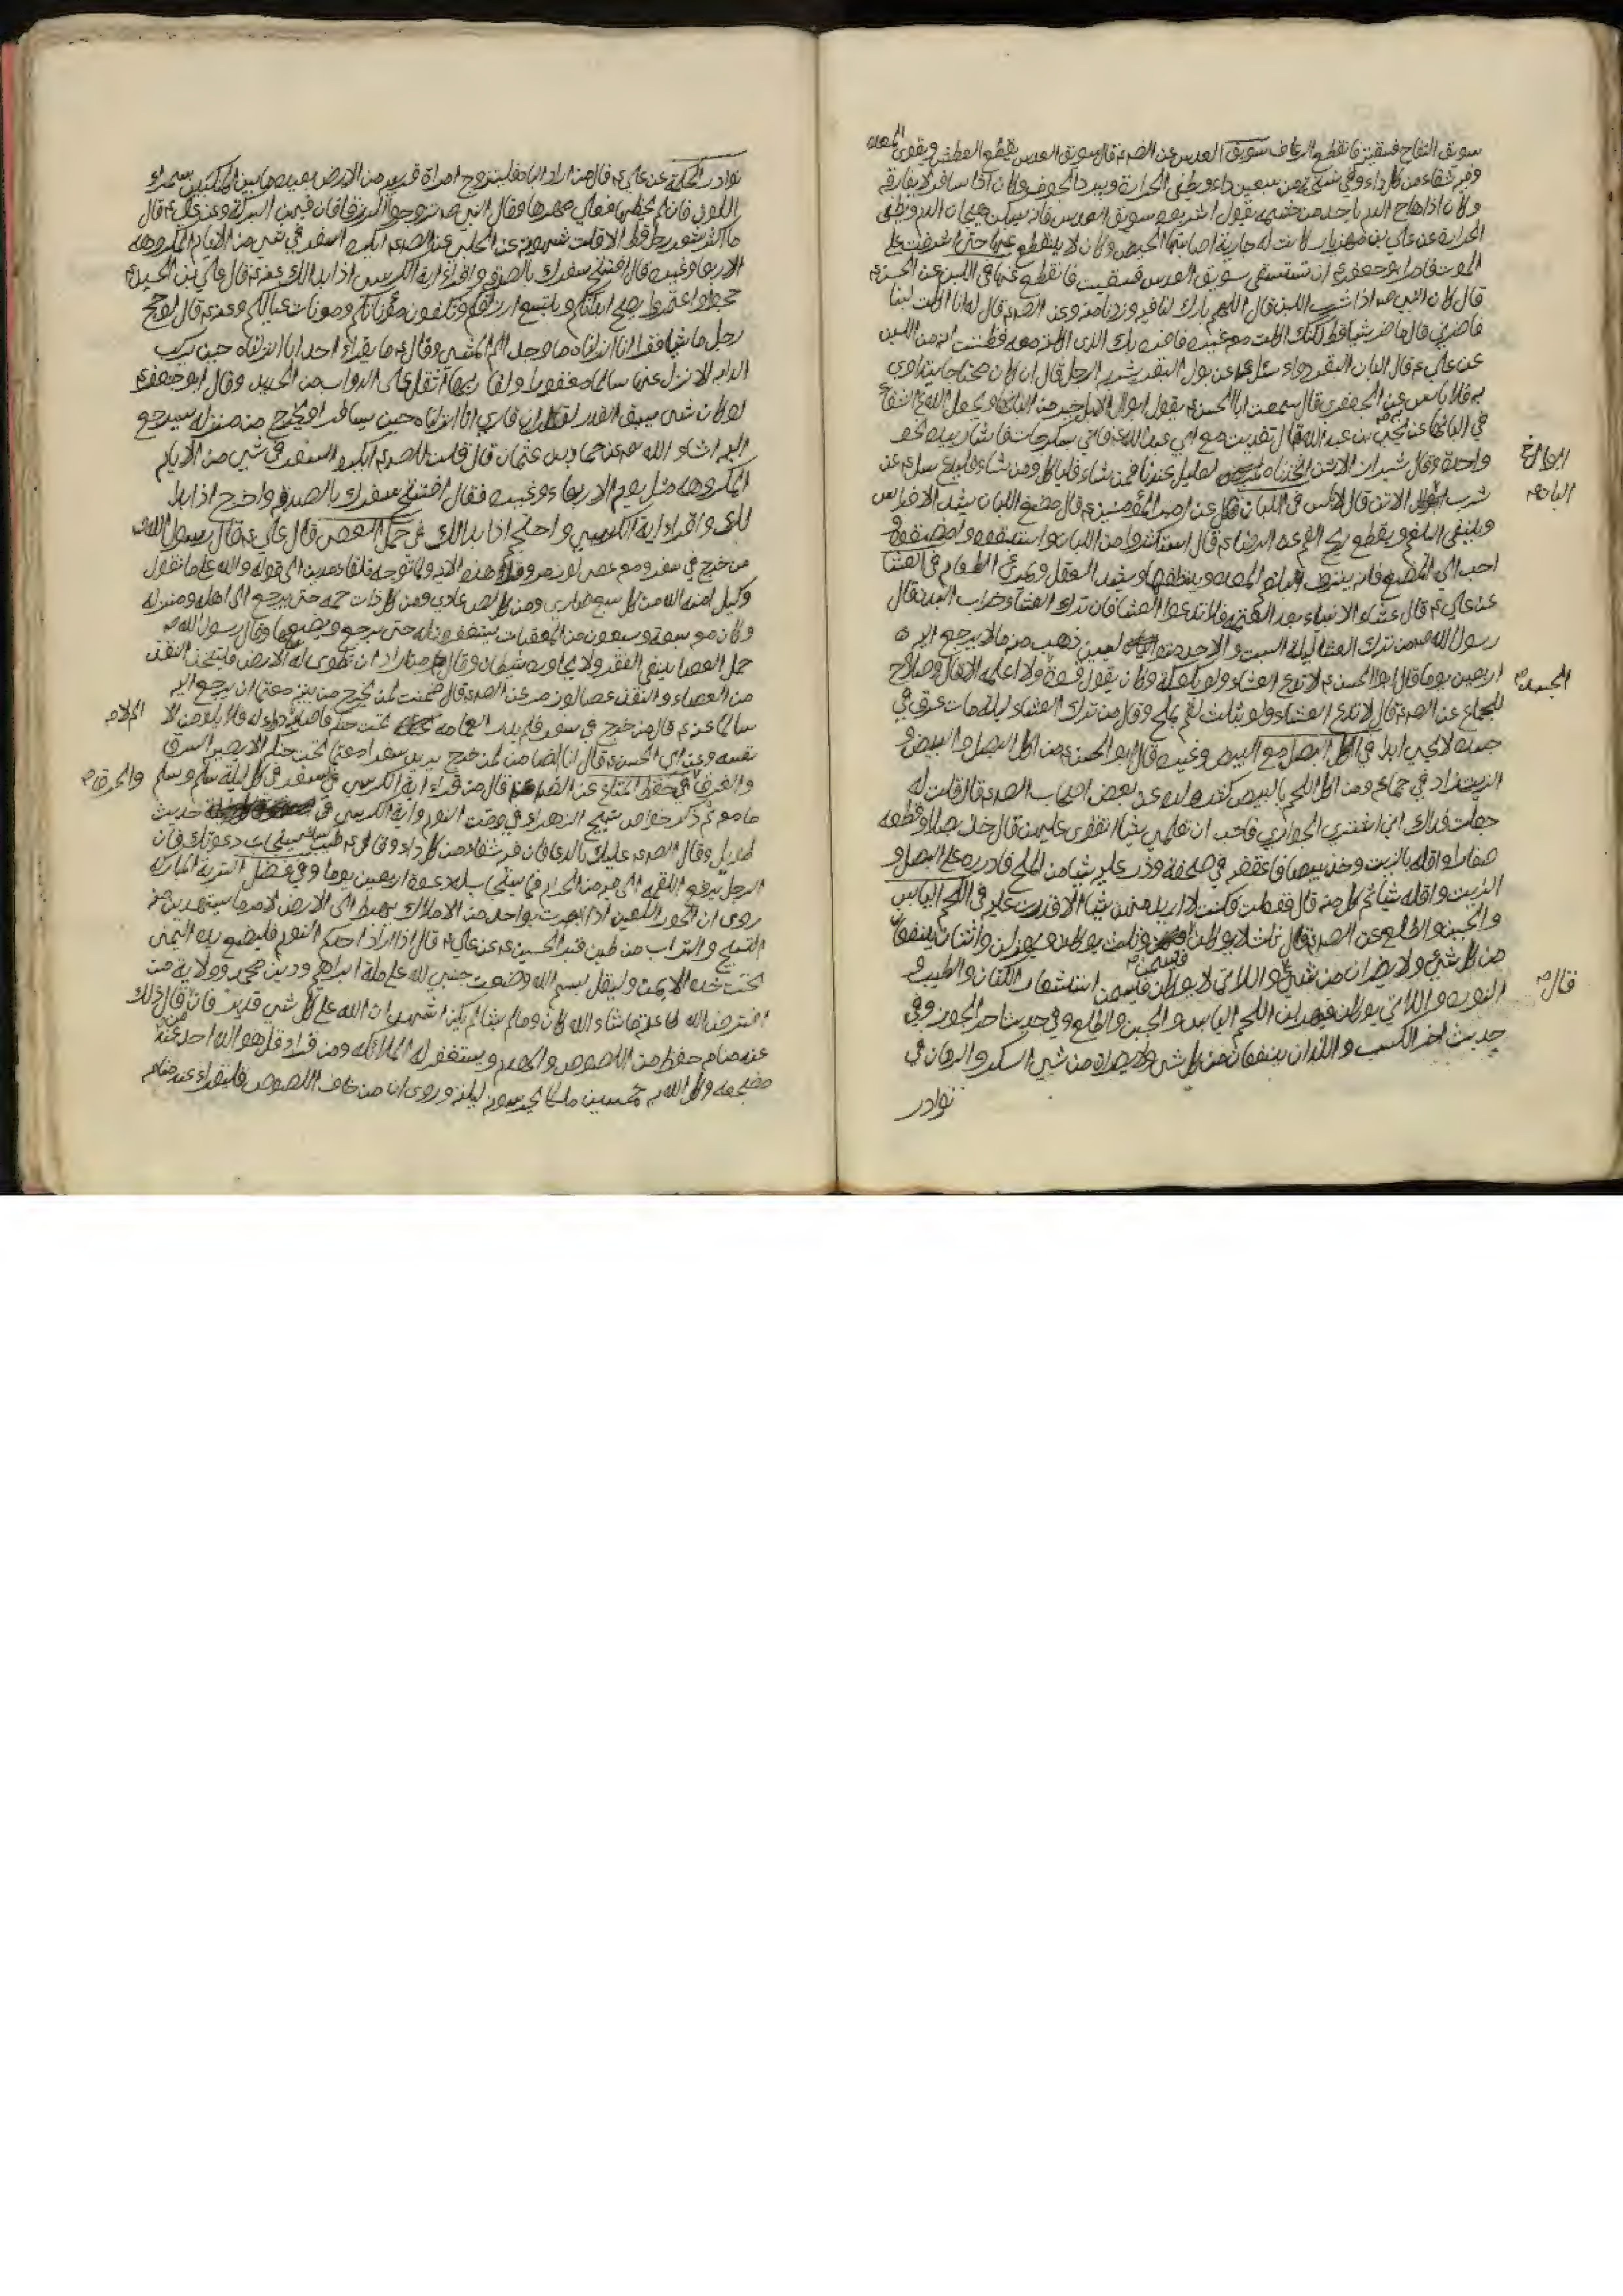 سويق التفاح فسقيته فانقطع الرعاف سويق العدس عن الصم قال سويق العدس يقطع العطش ويقوى المعده
وفيه شفاء من كل داء وفى نسخة من سبعين داء ويطفى الحرارة ويبرد الجوف وكان اذا سافر لا يفارقه
وكان اذا هاج الدم باحد من حشمه يقول اشربه من سويق العدس فانه يسكن هيجان الدم ويطفى
الحرارة عن علي بن مهزيار كانت له جارية اصابها الحيض وكان لا ينقطع عنها حتى اشرفت على
الموت فامر ابو جعفر ع ان تسقى سويق العدس فسقيت فانقطع عنها في اللبن عن الحسن ع
قال كان النبي ص اذا شرب اللبن قال اللهم بارك لنا فيه وزدنا منه وعن الصم قال له انا اكلت لبنا
فاضرني قال ما ضر شيا قط لكنك اكلت معه غيره فاضر بك الذى اكلته معه فظننت انه من اللبن
عن علي ع قال البان البقر دواء سئل عن بول البقر يشربه الرجل قال ان كان محتاجا يتداوى
به فلا باس عن الجعفري قال سمعت ابا الحسن ع يقول ابوال الابل خير من البانها ويجعل الله الشفاء
في البانها عن يحيى بن عبد الله قال تغديت مع ابي عبد الله ع فاتي بسكرجات فاشار بيده نحو
واحدة وقال شيراز الاتن اتخذناه لعليل عندنا فمن شاء فلياكل ومن شاء فليدع سئل ع عن
شرب ابوال الاتن قال لا باس في اللبان عن امير المؤمنين ع قال مضغ اللبان يشد الاضراس
وينفى البلغم ويقطع ريح الفم عن الرضا ع قال استكثروا من اللبان واستفوه وامضغوه و
احب الى المضغ فانه ينزف بلغم المعده وينظفها ويشد العقل ويمرئ الطعام في العشا
عن علي ع قال عشاء الانبياء بعد العتمة فلا تدعوا العشا فان ترك العشاء خراب البدن قال
رسول الله ص من ترك العشا ليلة السبت والاحد متواليين ذهب منه ما لا يرجع اليه
اربعين يوما قال ابو الحسن ع لا تدع العشاء ولو بكعكة وكان يقول قوة ولا اعلمه الا قال وصلاح
للجماع عن الصم قال لا تدع العشاء ولو بثلث لقم بملح وقال من ترك العشاء ليلة مات عرق في
جسده لا يحيى ابدا في اكل البصل مع البيض وغيره قال ابو الحسن ع من اكل البصل والبيض و
الزيت زاد في جماعه ومن اكل اللحم بالبيض كثر ولده عن بعض اصحاب الصم قال قلت له
جعلت فداك اني اشتري الجواري فاحب ان تعلمني شيا اتقوى عليهن قال خذ بصلا وقطعه
صغارا واقله بالزيت وخذ بيضا فافقصه في صحفة وذر عليه شيا من الملح فاذره على البصل و
الزيت واقله شيا ثم كل منه قال ففعلت فكنت لا اريد منهن شيا الا قدرت عليه في اللحم اليابس
والجبن والطلع عن الصم قال ثلث لا يوكلن ويسمن وثلث يوكلن ويهزلن واثنان ينفعان
من كل شي ولا يضران من شي واللاتي لا يوكلن ويسمن استشعار الكتان والطيب و
النوره واللاتي يوكلن ويهزلن اللحم اليابس والجبن والطلع وفي حديث اخر الجوز وفي
حديث اخر الكسب واللذان ينفعان من كل شي ولا يضران من شي السكر والرمان في
نوادر
قال
نوادر الحكمة عن علي ع قال من اراد الباه فليتزوج امراة قريبه من الارض بعيده ما بين المنكبين سمراء
اللون فان لم يحظها فعلي مهرها وقال النبي ص تزوجوا الزرق فان فيهن البركة وعن علي ع قال
ما كثر شعر رجل قط الا قلت شهوته عن الحلبي عن الصم ايكره السفر في شي من الايام المكروهه
الاربعا وغيره قال افتتح سفرك بالصدقة واقراء اية الكرسي اذا بدا لك وعنه ع قال علي بن الحسين ع
حجوا واعتمروا يصح ابدانكم ويتسع ارزاقكم وتكفون مؤناتكم ومونات عيالكم وعنه ع قال لو حج
رجل ماشيا فقرا انا انزلناه ما وجد الم المشى وقال ع ما يقراء احد انا انزلناه حين يركب
الدابه الا نزل عنها سالما مغفورا ولقاريها اثقل على الدواب من الحديد وقال ابو جعفر ع
لو كان شي يسبق القدر لقلت ان قاري انا انزلناه حين يسافر او يخرج من منزله سيرجع
اليه انشاء الله عن حماد بن عثمان قال قلت للصم ايكره السفر في شي من الايام
المكروهه مثل يوم الاربعاء وغيره فقال افتتح سفرك بالصدقة واخرج اذا بدا
لك واقراء اية الكرسي واحتجم اذا بدا لك في حمل العصى قال علي ع قال رسول الله ص
من خرج في سفر ومعه عصى لوز مر وقراء هذه الاية ولما توجه تلقاء مدين الى قوله والله على ما نقول
وكيل امنه الله من كل سبع ضاري ومن كل لص عادي ومن كل ذات حمه حتى يرجع الى اهله ومنزله
وكان معه سبعة وسبعون من المعقبات يستغفرون له حتى يرجع ويضعها وقال رسول الله ص
حمل العصا ينفى الفقر ولا يجاوره شيطان وقال ص من اراد ان تطوى له الارض فليتخذ النقد
من العصاء والنقد عصا لوز مر عن الصم قال ضمنت لمن يخرج من بيته معتما ان يرجع اليه
سالما عنه ع قال من خرج في سفر فلم يدر العمامه تحت حنكه فاصابه داء لا دواء له فلا يلومن الا
نفسه وعن ابي الحسن ع قال انا الضامن لمن خرج يريد سفرا معتما تحت حنكه الا يصيبه السرق
والغرق في حفظ المتاع عن الصم قال من قراء اية الكرسي في سفر في كل ليلة سلم وسلم والحرق
ما معه ثم ذكر خواص تسبيح الزهراء في وقت النوم واية الكرسي في حديث
طويل وقال الصم عليك بالدعا فان فيه شفاء من كل داء وقال ع طيب كسبك يستجاب دعوتك فان
الرجل يرفع اللقمه الى فيه من الحرام فما يستجاب له دعوة اربعين يوما وفي فضل التربة المباركه
روى ان الحور العين اذا ابصرت بواحد من الاملاك يهبط الى الارض لامر ما يستهدين منه
التسبيح والتراب من طين قبر الحسين ع عن علي ع قال اذا اراد احدكم النوم فليضع يده اليمنى
تحت خده الايمن وليقل بسم الله وضعت جنبي لله على ملة ابراهيم ودين محمد وولاية من
افترض الله طاعته ما شاء الله كان وما لم يشا لم يكن اشهد ان الله على كل شي قدير فان قال ذلك
عند منامه حفظ من اللصوص والهدم ويستغفر له الملائكه ومن قراء قل هو الله احد عند
مضجعه وكل الله به خمسين ملكا يحرسونه ليلته وروى ان من خاف اللصوص فليقراء عند منامه